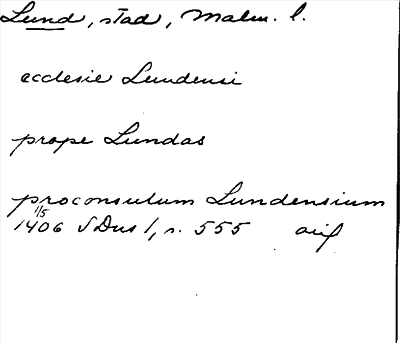 Lund, stad, Malm. l.
ecclesie Lundensi
prope Lundas
proconsulum Lundensium
1/5
1406 SDns 1, s. 555